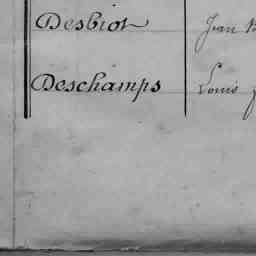 Desbiot Jean
Deschamps Louis